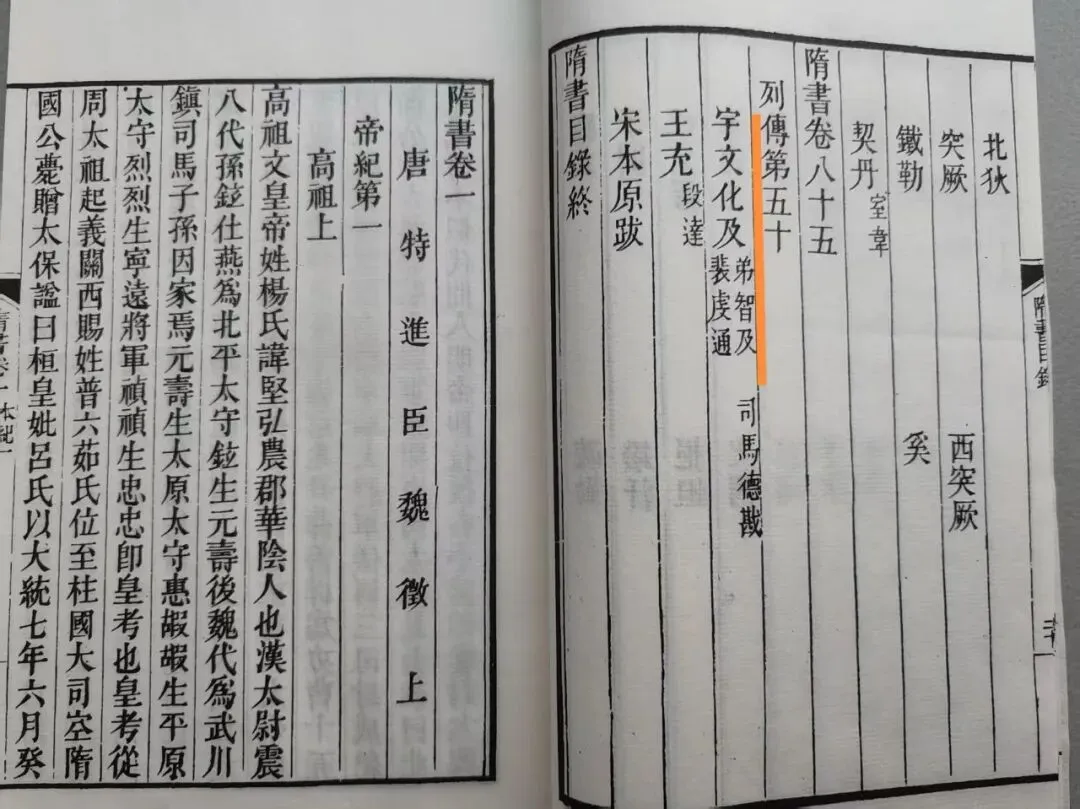 北狄
突厥 西突厥
鐵勒 奚
契丹 室韋
隋書卷八十五
列傳第五十
宇文化及 弟智及 司馬德戡
裴虔通
王充 段達
宋本原跋
隋書目錄終
隋書目錄
隋書卷一
唐特進臣魏徵上
帝紀第一
高祖上
高祖文皇帝姓楊氏諱堅弘農郡華陰人也漢太尉震
八代孫鉉仕燕爲北平太守鉉生元壽後魏代爲武川
鎮司馬子孫因家焉元壽生太原太守惠嘏嘏生平原
太守烈烈生寧遠將軍禎禎生忠忠卽皇考也皇考從
周太祖起義關西賜姓普六茹氏位至柱國大司空隋
國公薨贈太保諡曰桓皇妣呂氏以大統七年六月癸